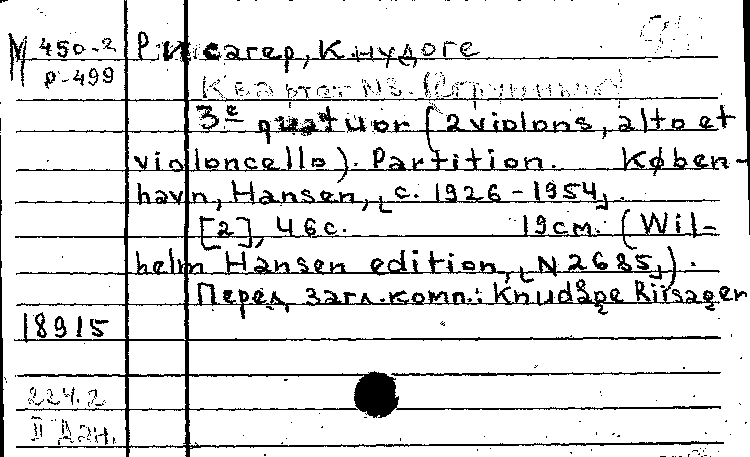 М 450-2 Риисагер, Кнудоге
Р-499
Квартет №3. (Струнный)
3е quatuor (2 violons, alto et
violoncello). Partition. Køben-
havn, Hansen, [c. 1926-1954].
[2], 46с. 19см. (Wil-
helm Hansen edition, [N 2685]).
Перед загл. комп.: Knudåge Riisager
18915
224.2
II Дан.